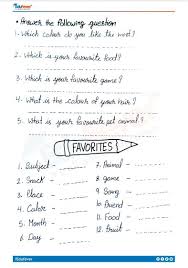 • Answer the following question
1. Which colour do you like the most?
2. Which is your favourite food?
3. Which is your favourite game?
4. What is the colour of your hair?
5. What is your favourite pet animal?
FAVORITES
1. Subject -
2. Snack -
3. Place -
4. Color -
5. Month -
6. Day -
7. Animal -
8. game -
9. Song -
10. Friend -
11. Food -
12. Fruit -